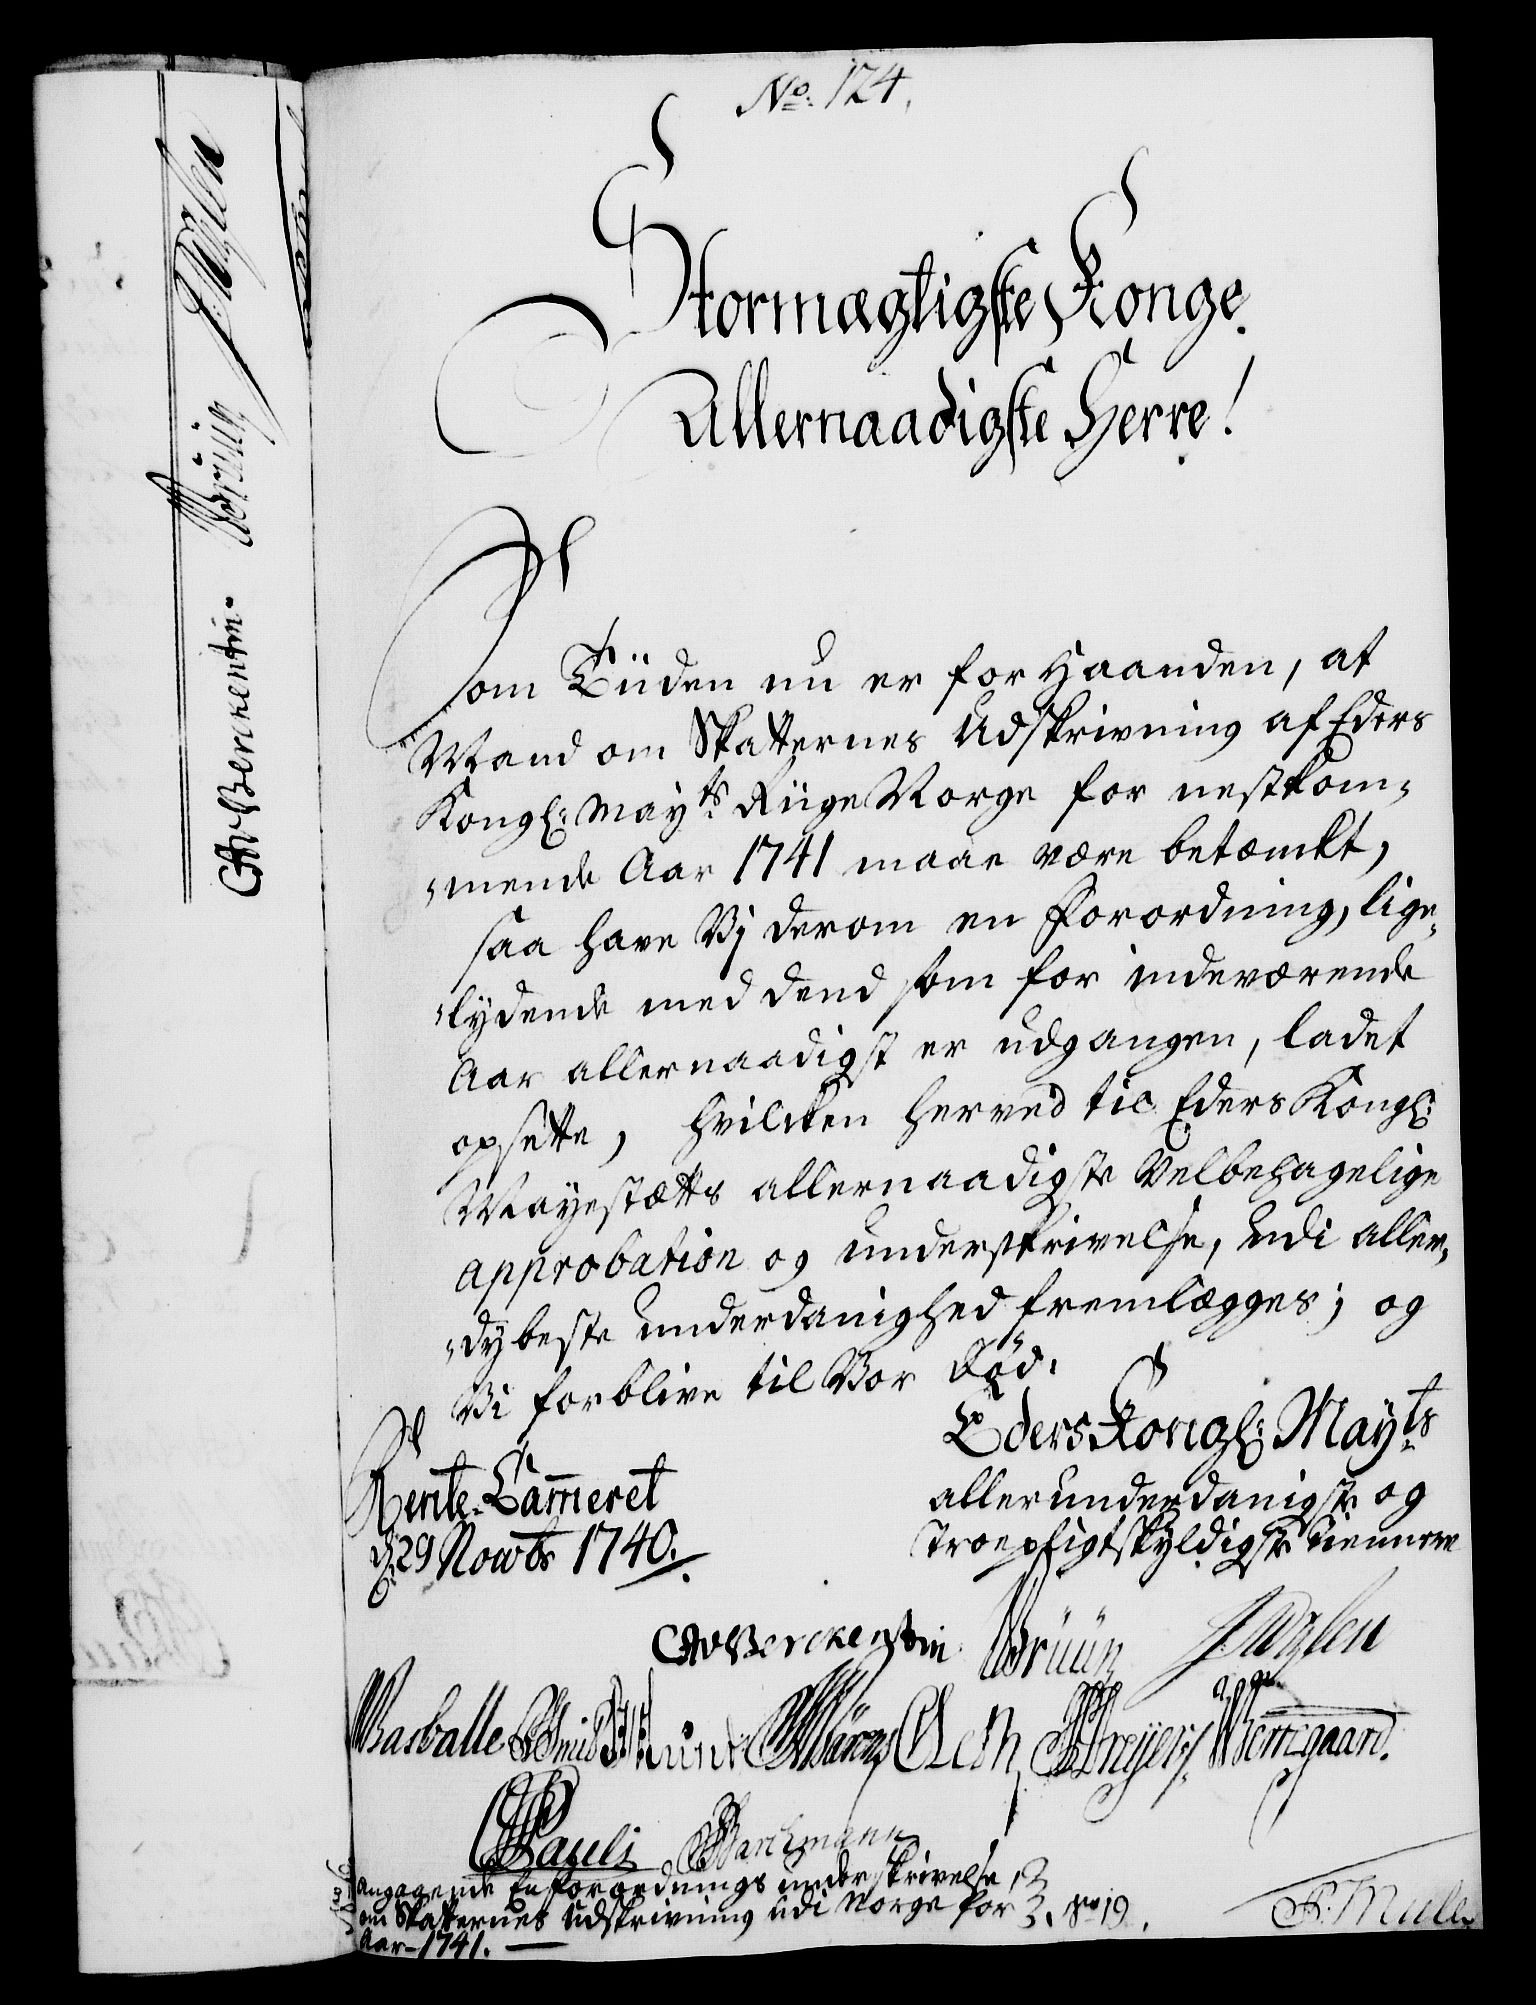 No: 124.
Stormægtigste Konge
Allernaadigste Herre!
Som Tiiden nu er for Haanden, at
Maad om Skatternes Udskrivning af Eders
Kongl: Mayts Riige Norge for nestkom-
mende Aar 1741 maae være betænckt,
saa have Vi derom en Forordning, lige-
lydende med dend som for indeværende
Aar allernaadigst er udgangen, ladet
opsette, hvilcken herved til Eders Kongl:
Mayestætts allernaadigste Velbehagelige
approbation og underskrivelse, udi aller-
dybeste underdanighed fremlægges; og
Vi forblive til Vor Død.
Eders Kongl: Mayts
allerunderdanigste og
troepligtskyldigste tiennere
Rente-Cammeret
d. 29 Novbr 1740.
CAvBerckentin Brüün
Basballe Pauli
Angagende En Forordnings underskrivelse
om Skatternes Udskrivning udi Norge for
Aar 1741.
No 19.
CAvBerckentin. Brüün